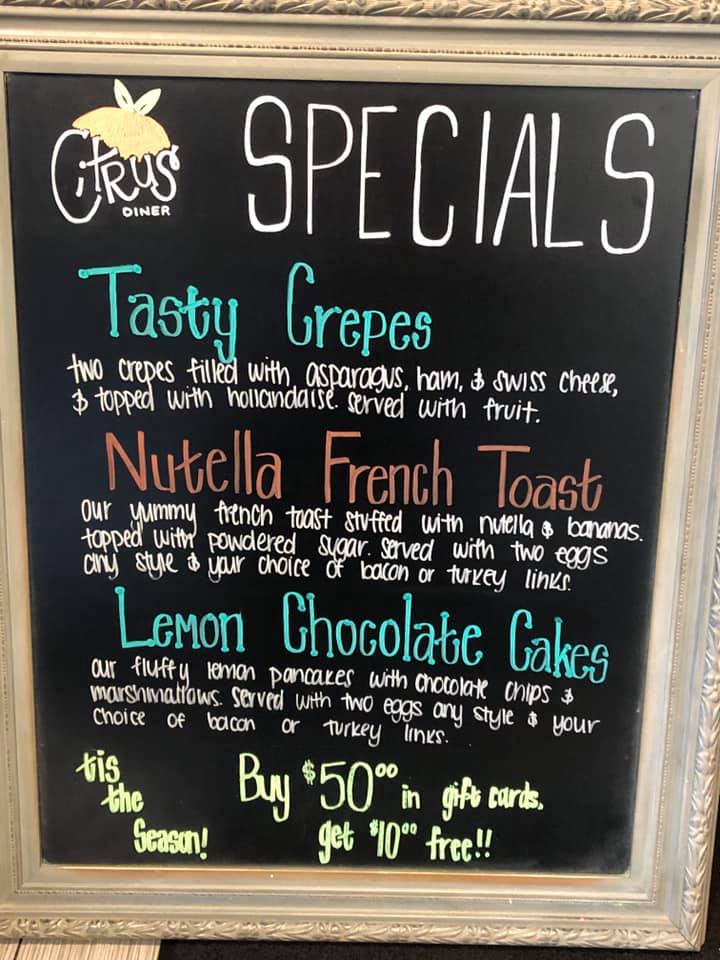 Citrus
DINER
SPECIALS
Tasty Crepes
two crepes filled with asparagus, ham, & swiss cheese,
& topped with hollandaise. served with fruit.
Nutella French Toast
our yummy french toast stuffed with nutella & bananas.
topped with powdered sugar. served with two eggs
any style & your choice of bacon or turkey links.
Lemon Chocolate Cakes
our fluffy lemon pancakes with chocolate chips &
marshmallows. served with two eggs any style & your
choice of bacon or turkey links.
tis
the
Season!
Buy $50⁰⁰ in gift cards,
get $10⁰⁰ free!!